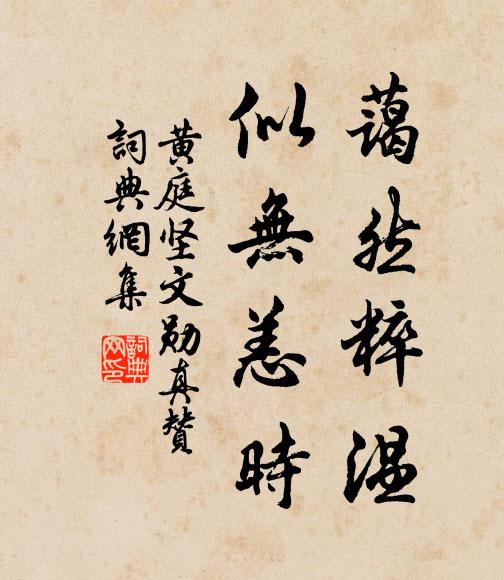 藹然粹温
似無恙時
黃庭坚文勛真贊
詞典網集
詞典網印